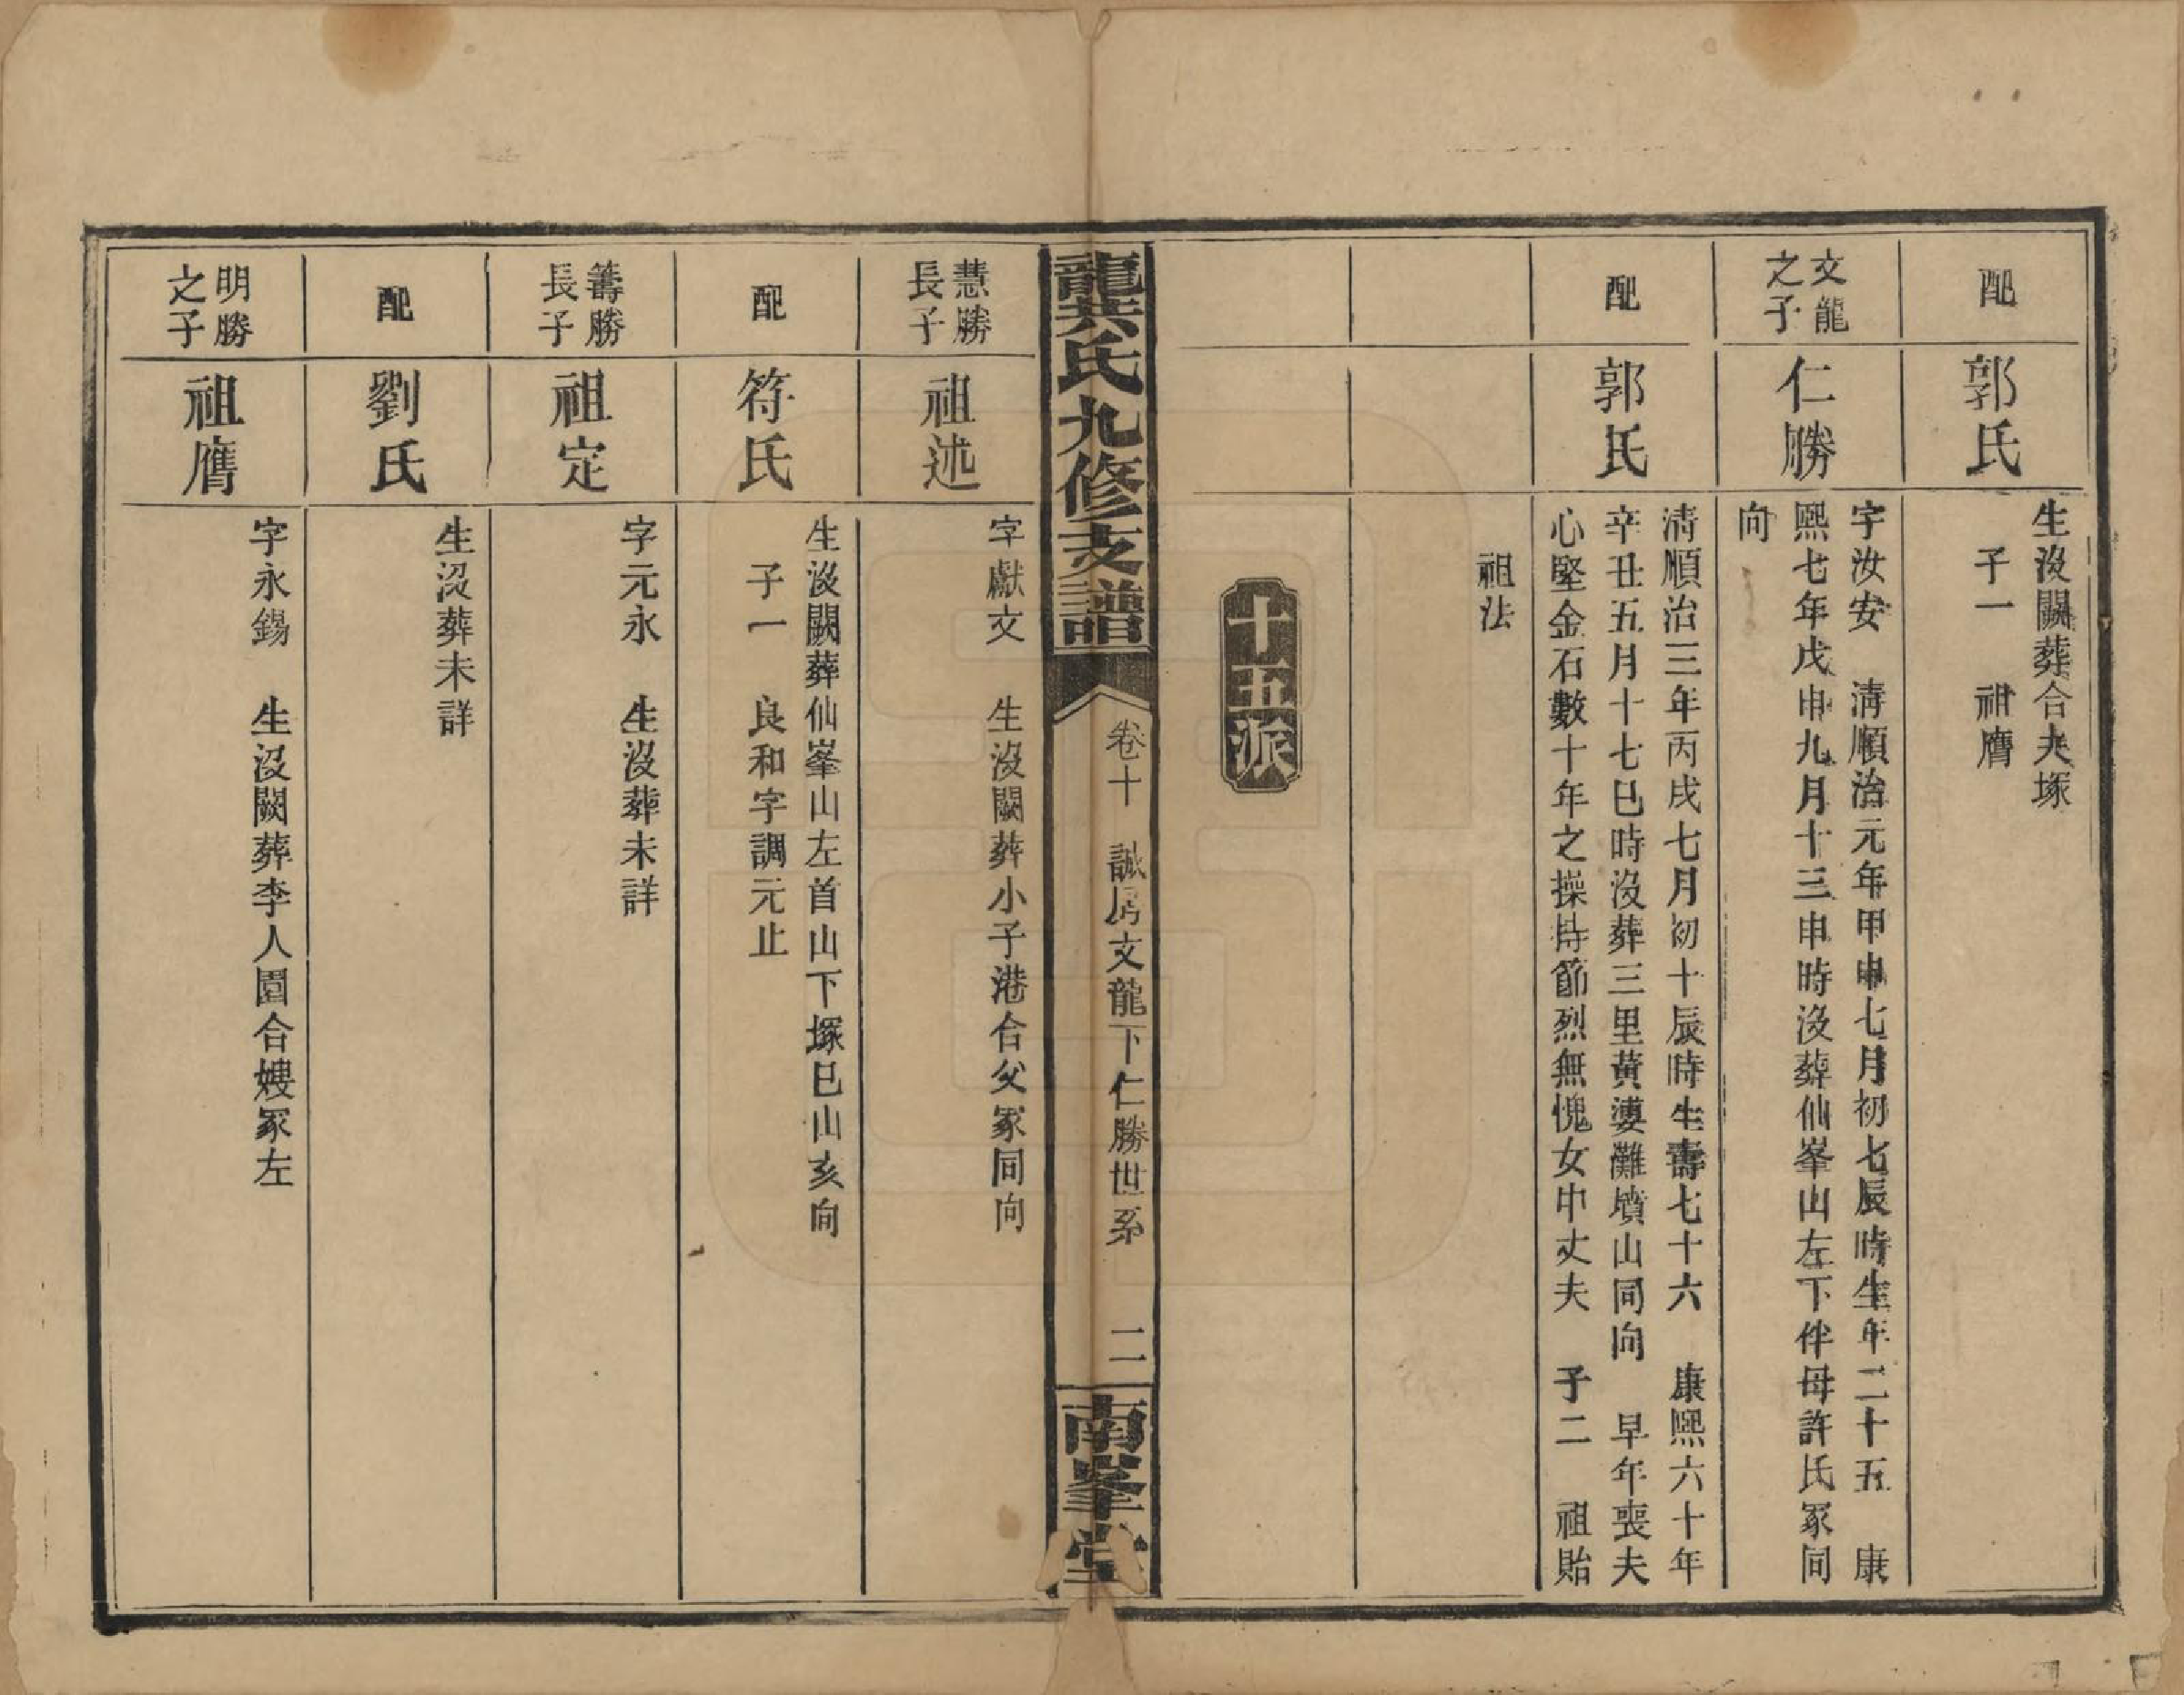 配
郭氏
生沒闕葬合夫塚
子一　祖膺
文龍
之子
仁勝
字汝安　清順治元年甲申七月初七辰時生年二十五　康
熙七年戊申九月十三申時沒葬仙峯山左下伴母許氏冢同
向
配
郭氏
清順治三年丙戌七月初十辰時生壽七十六　康熙六十年
辛丑五月十七巳時沒葬三里黃婆灘墳山同向　早年喪夫
心堅金石數十年之操持節烈無愧女中丈夫　子二　祖貽
祖法
十五派
龍共氏九修支譜
卷十　誠房文龍下仁勝世系　二
南峯堂
慧勝
長子
祖述
字獻文　生沒闕葬小子港合父冢同向
配
符氏
生沒闕葬仙峯山左首山下塚巳山亥向
子一　良和字調元止
籌勝
長子
祖定
字元永　生沒葬未詳
配
劉氏
生沒葬未詳
明勝
之子
祖膺
字永錫　生沒闕葬李人園合嫂冢左